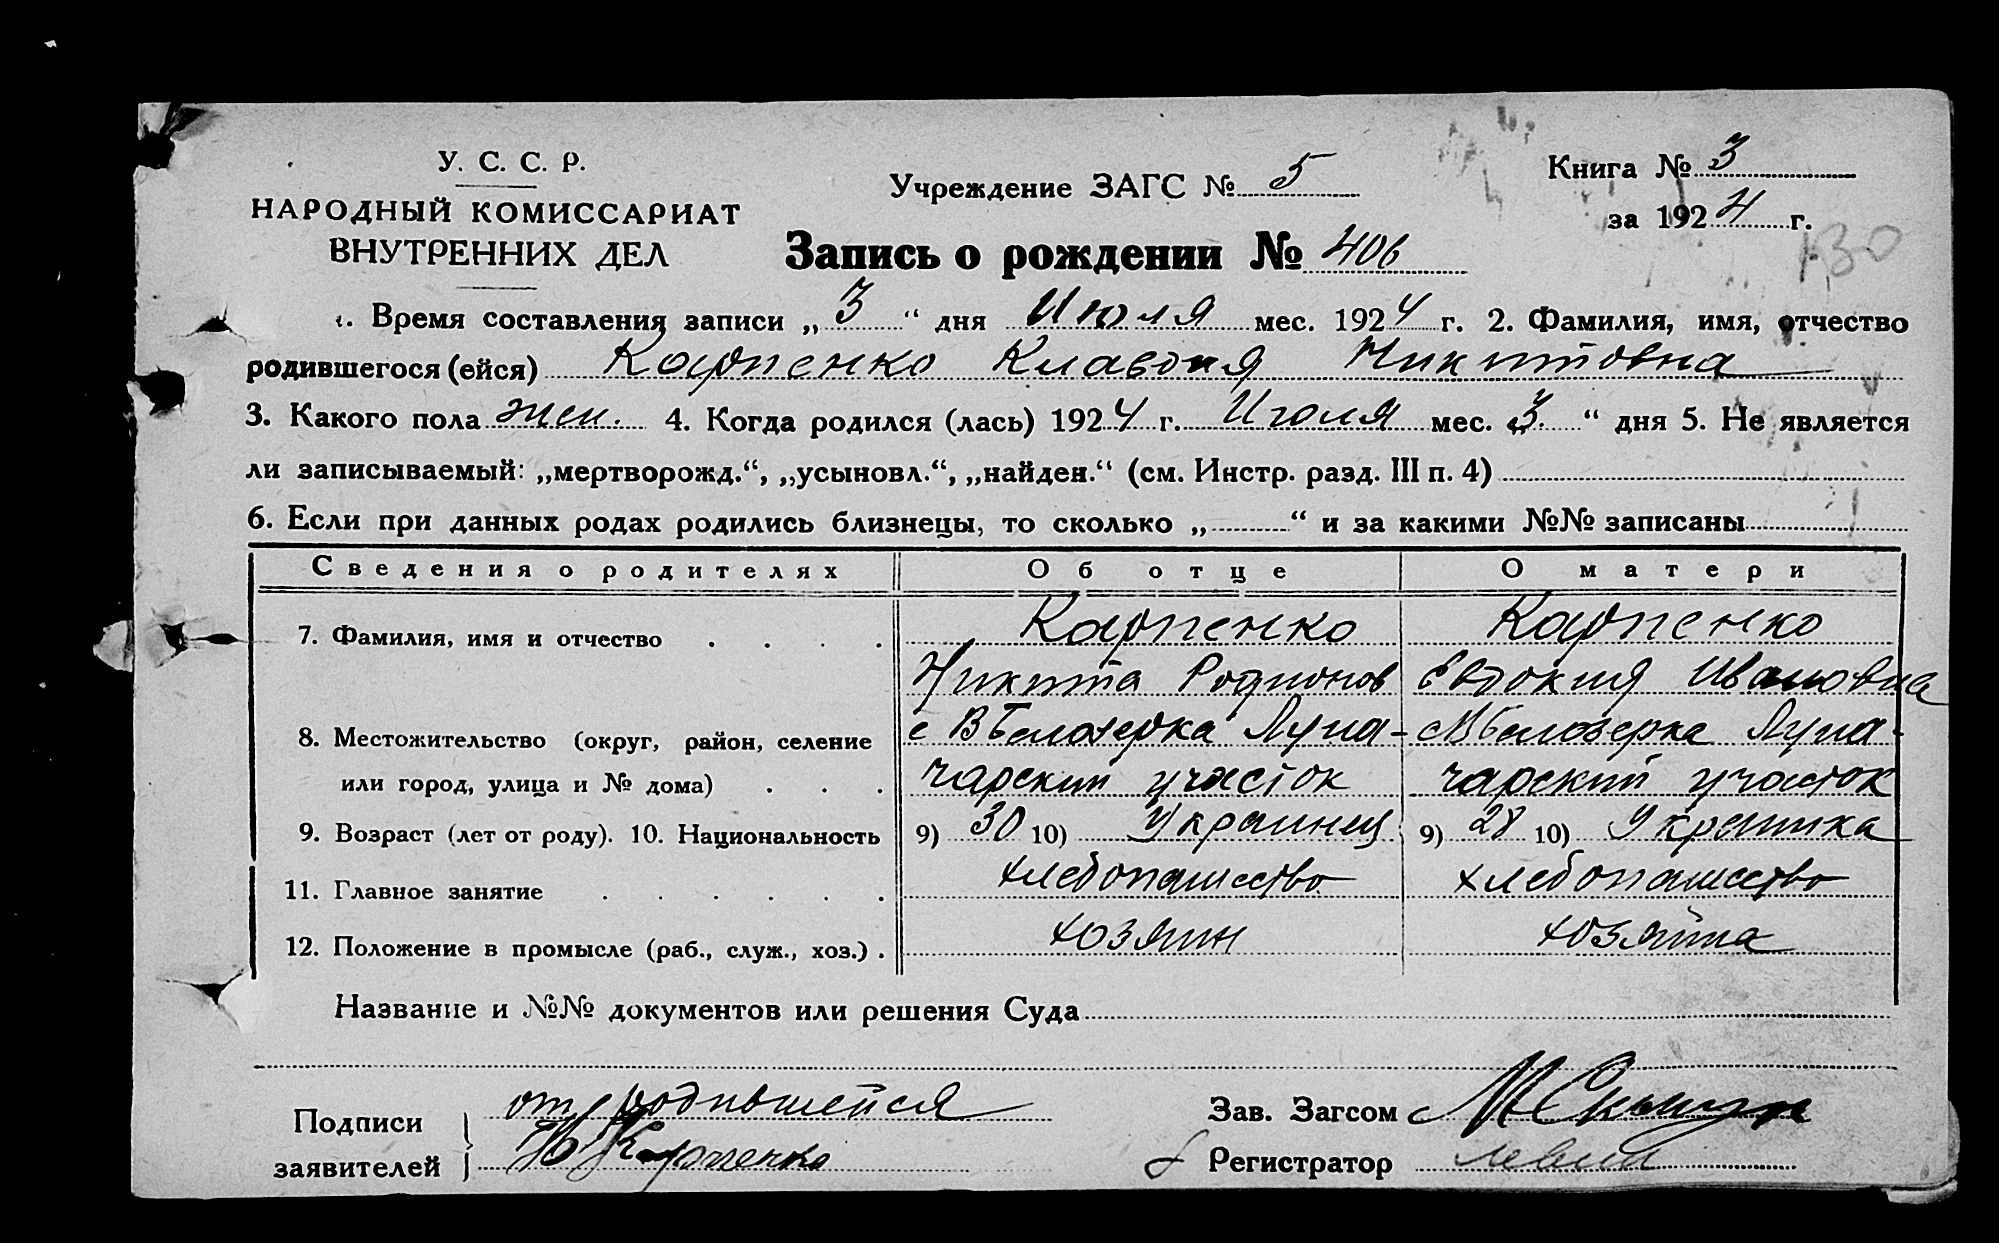 У. С. С. Р.
НАРОДНЫЙ КОМИССАРИАТ
ВНУТРЕННИХ ДЕЛ
Учреждение ЗАГС № 5
Книга № 3
за 1924 г.
130
Запись о рождении № 406
1. Время составления записи „3“ дня Июля мес. 1924 г. 2. Фамилия, имя, отчество
родившегося (ейся) Карпенко Клавдия Никитовна
3. Какого пола жен. 4. Когда родился (лась) 1924 г. Июля мес. „3.“ дня 5. Не является
ли записываемый: „мертворожд.“, „усыновл.“, „найден.“ (см. Инстр. разд. III п. 4)
6. Если при данных родах родились близнецы, то сколько „ “ и за какими №№ записаны
Сведения о родителях Об отце О матери
7. Фамилия, имя и отчество Карпенко Карпенко
Никита Родионов Евдокия Ивановна
8. Местожительство (округ, район, селение с В Белозерка Луна- с В Белозерка Луна-
или город, улица и № дома) чарский участок чарский участок
9. Возраст (лет от роду). 10. Национальность 9) 30 10) Украинец 9) 28 10) Украинка
11. Главное занятие хлебопашество хлебопашество
12. Положение в промысле (раб., служ., хоз.) хозяин хозяйка
Название и №№ документов или решения Суда
Подписи
заявителей
от родившейся
Н Карпенко
Зав. Загсом
Регистратор